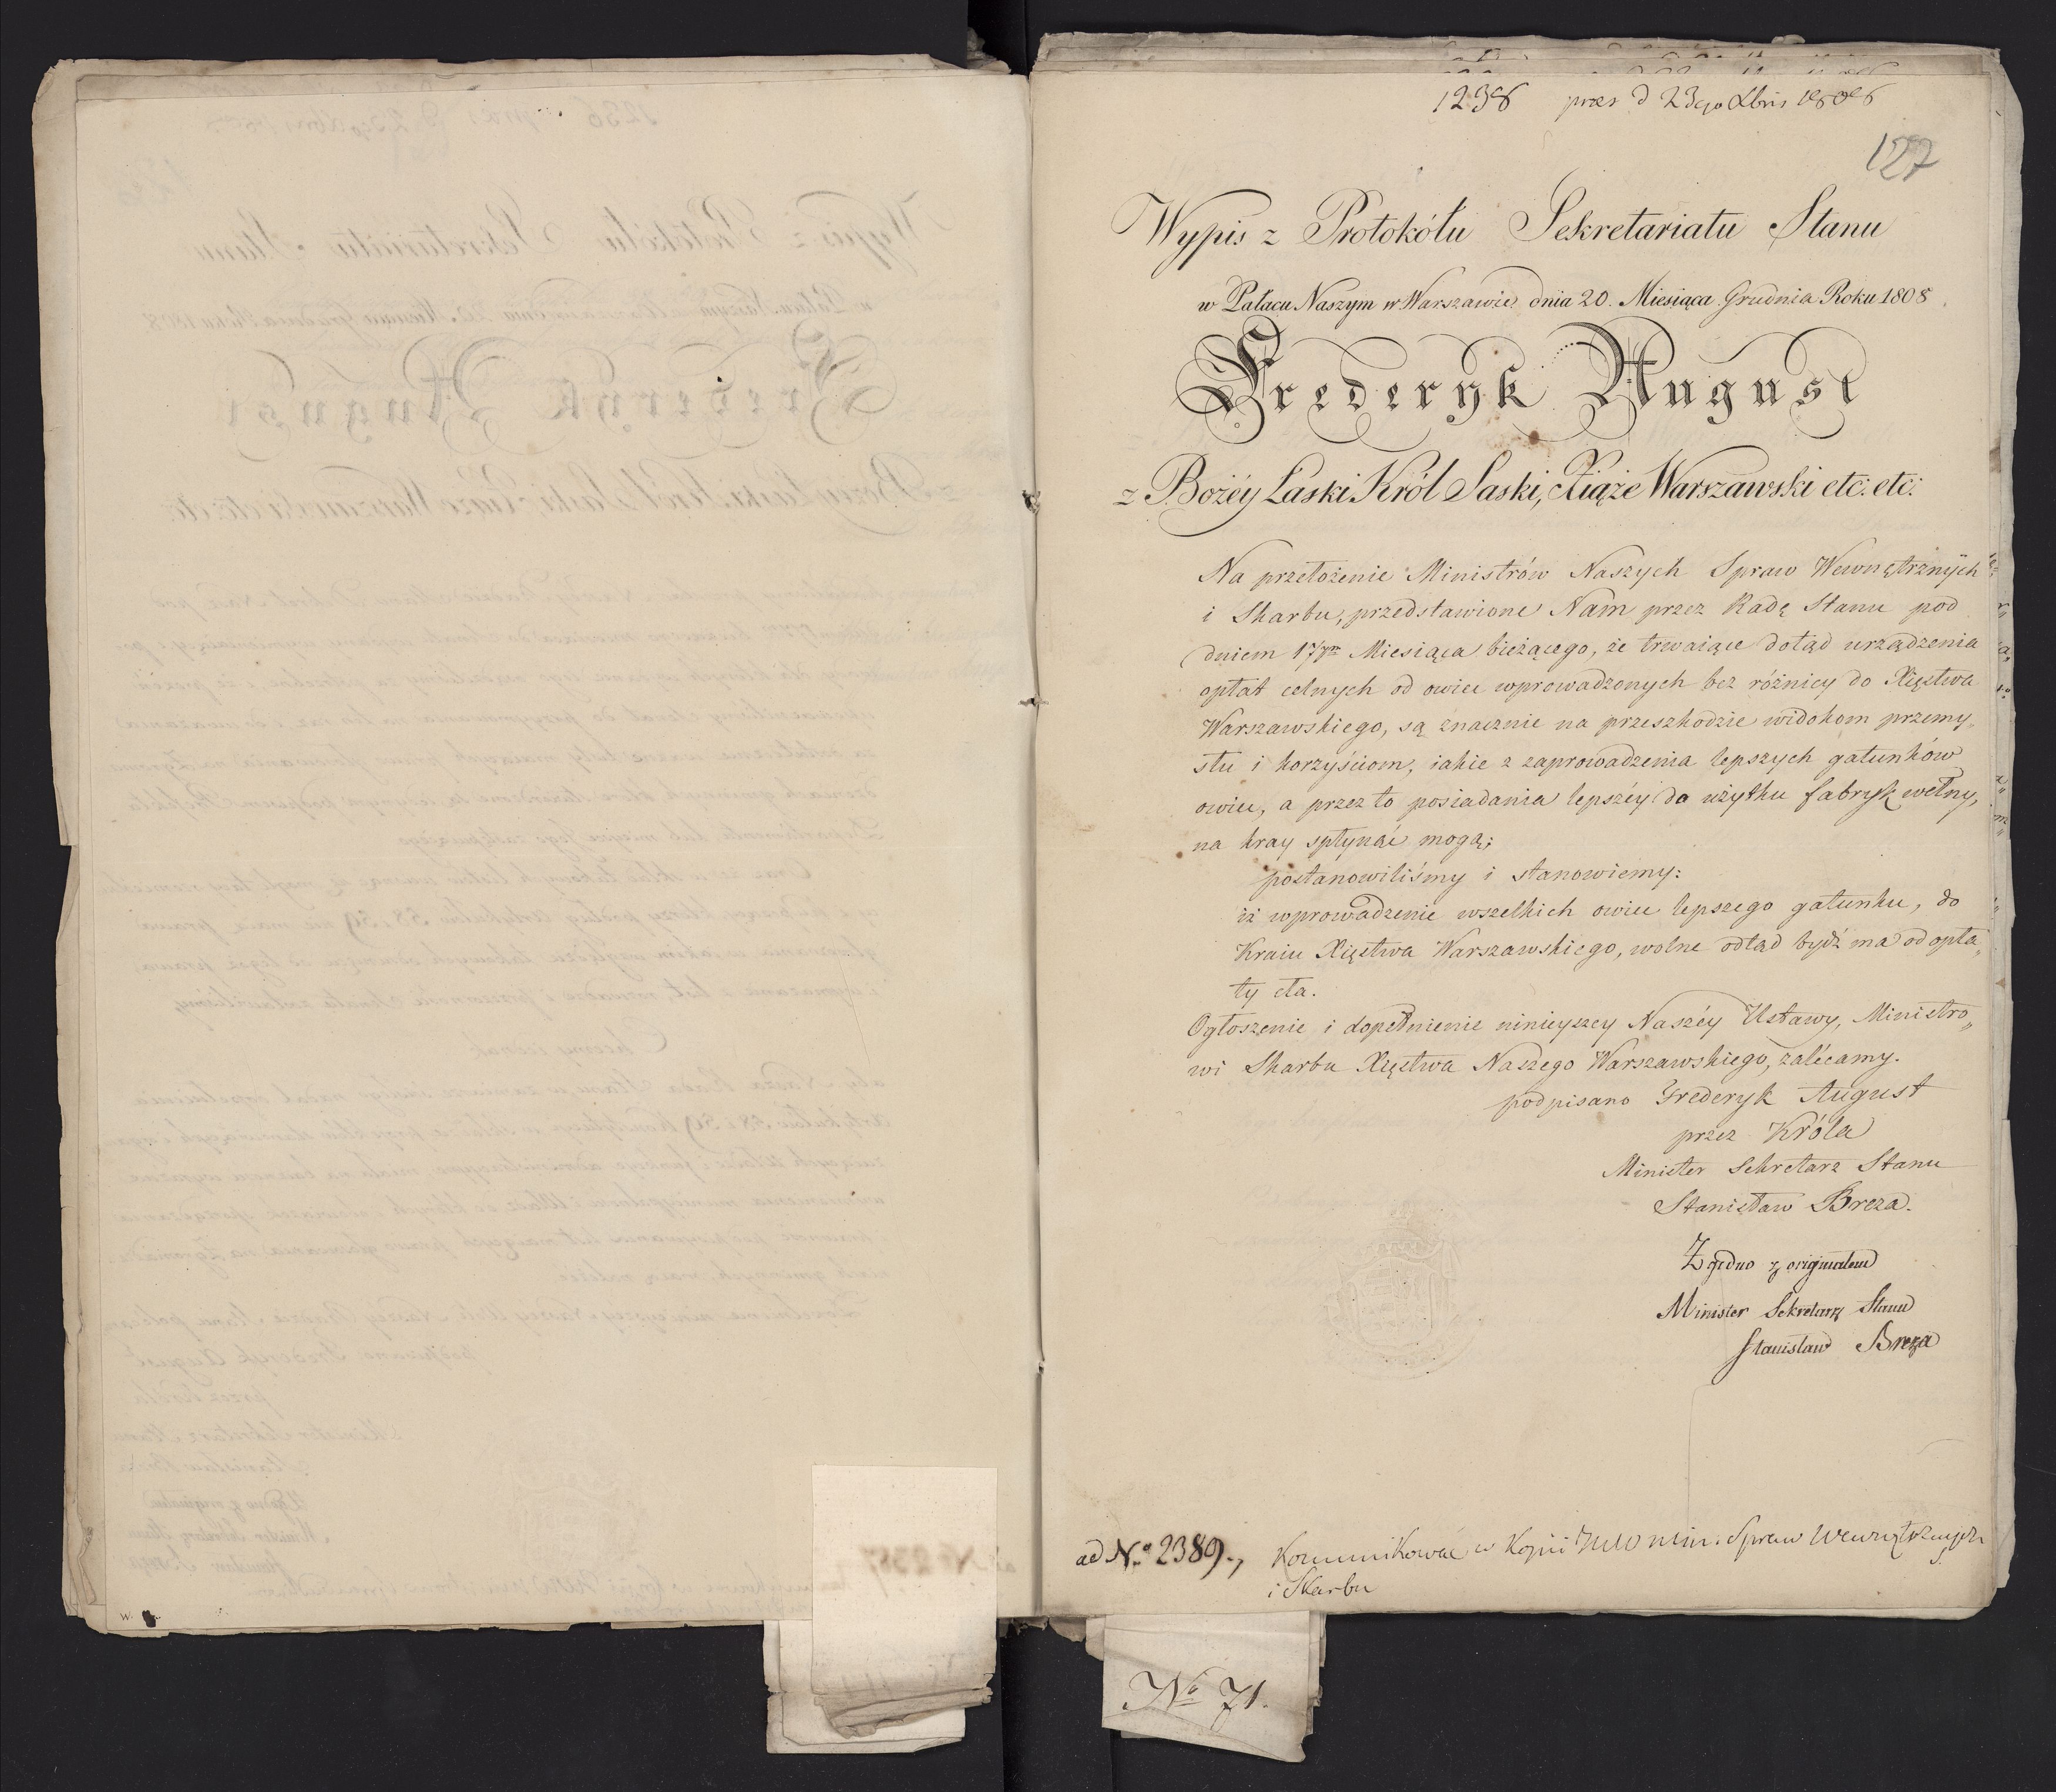 1238 præs d 23go Xbris 1808
127
Wypis z Protokółu Sekretariatu Stanu
w Pałacu Naszym w Warszawie dnia 20. Miesiąca Grudnia Roku 1808
Frederyk August
z Bożéy Łaski Król Saski, Xiąże Warszawski etc: etc:
Na przełożenie Ministrów Naszych Spraw Wewnętrznych
i Skarbu, przedstawione Nam przez Radę Stanu pod
dniem 17ym Miesiąca bieżącego, że trwaiące dotąd urządzenia
opłat celnych od owiec wprowadzonych bez różnicy do Xięstwa
Warszawskiego, są znacznie na przeszkodzie widokom przemy„
słu i korzyściom, iakie z zaprowadzenia lepszych gatunków
owiec, a przez to posiadania lepszéy do użytku fabryk wełny,
na kray spłynąć mogą;
postanowiliśmy i stanowiemy:
iż wprowadzenie wszelkich owiec lepszego gatunku, do
Kraiu Xięstwa Warszawskiego, wolne odtąd bydź ma od opła„
ty cła.
Ogłoszenie i dopełnienie ninieyszey Naszéy Ustawy, Ministro„
wi Skarbu Xięstwa Naszego Warszawskiego, zalécamy.
podpisano Frederyk August
przez Króla
Minister Sekretarz Stanu
Stanisław Breza.
Zgodno z originałem
Minister Sekretarz Stanu
Stanisław Breza
ad No 2389.,
Kommunikować w Kopii Min. Spraw Wewnętrznych
i Skarbu
No 71.